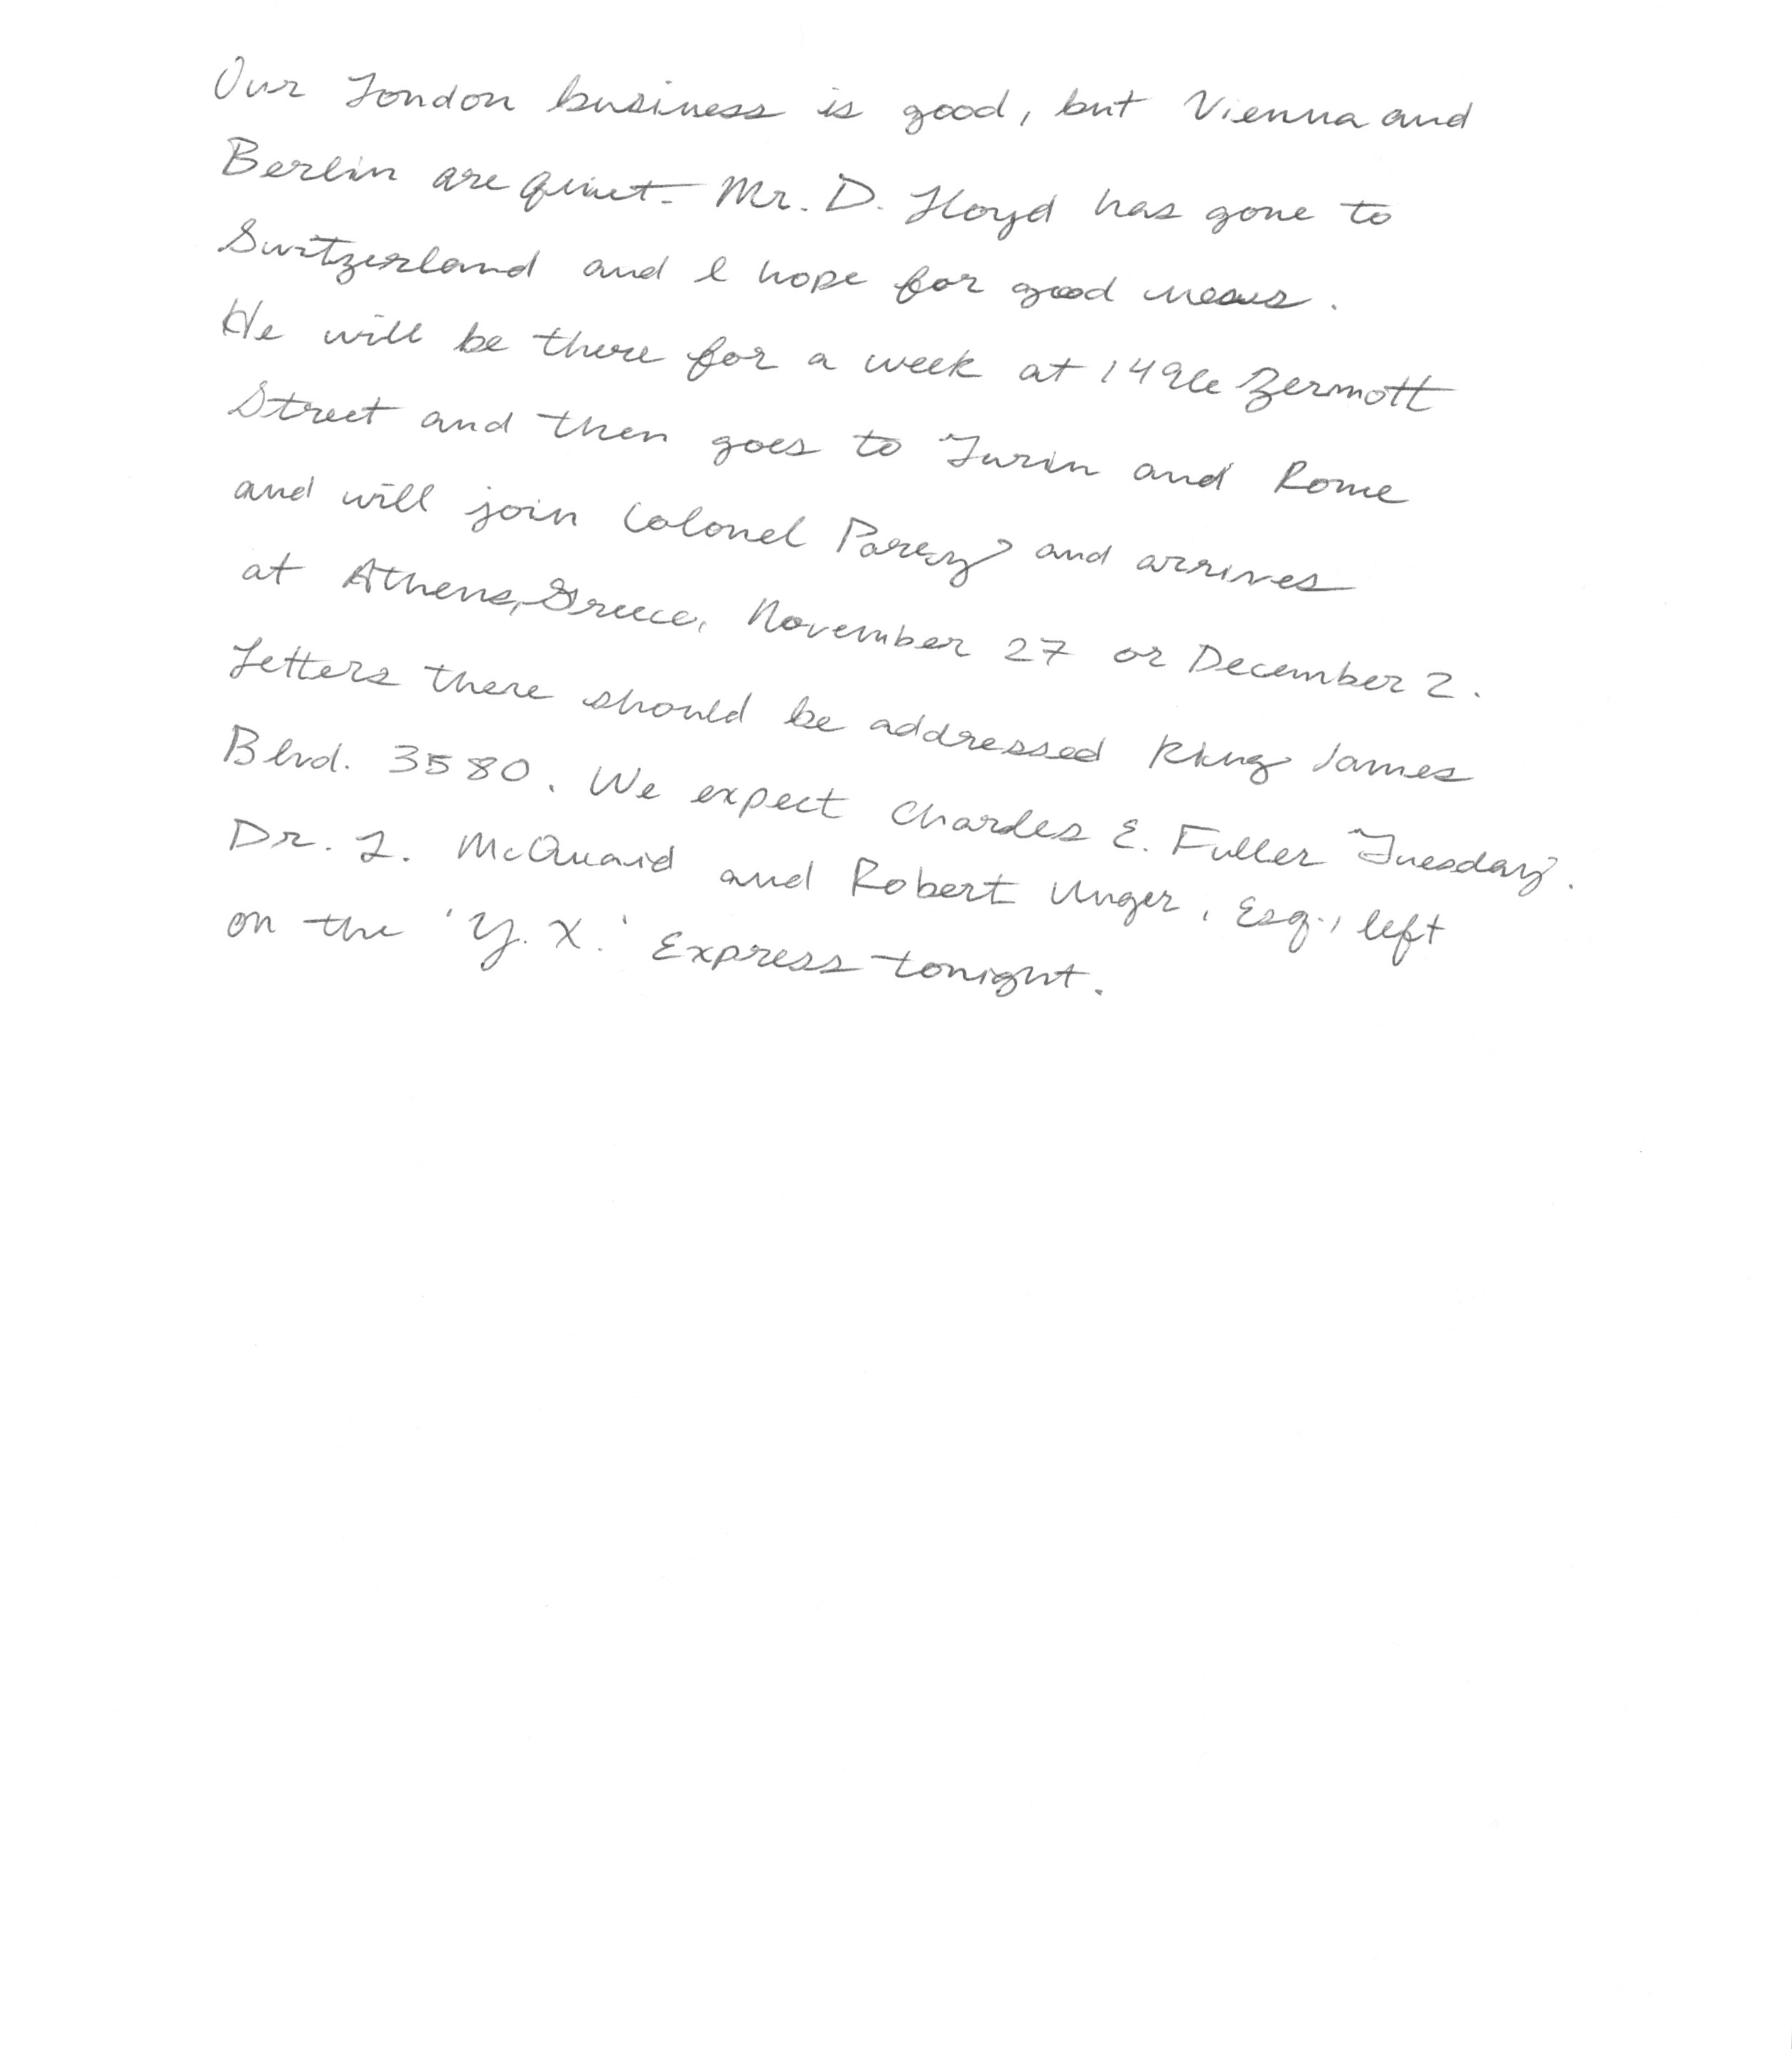 Our London business is good, but Vienna and
Berlin are quiet. Mr. D. Lloyd has gone to
Switzerland and I hope for good news.
He will be there for a week at 1496 Zermott
Street and then goes to Turin and Rome
and will join Colonel Parry and arrives
at Athens, Greece, November 27 or December 2.
Letters there should be addressed King James
Blvd. 3580. We expect Charles E. Fuller Tuesday.
Dr. L. McQuaid and Robert Unger, Esq., left
on the 'Y. X.' Express tonight.